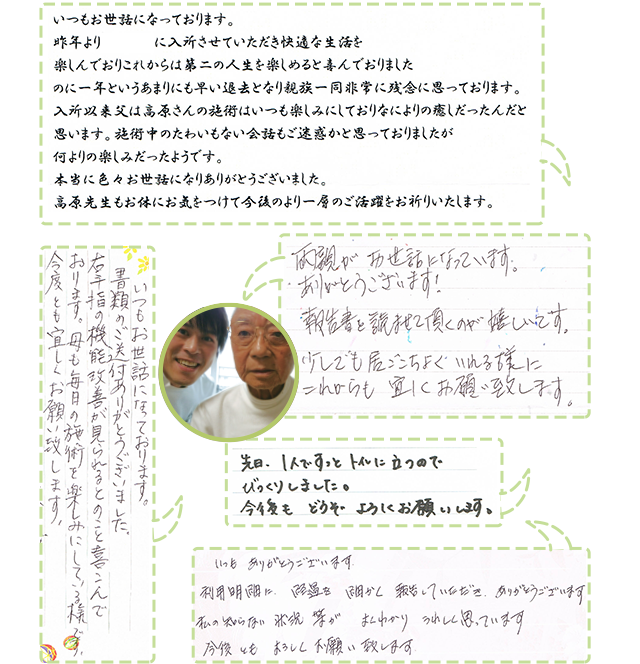 いつもお世話になっております。
昨年より　　　　に入所させていただき快適な生活を
楽しんでおりこれからは第二の人生を楽しめると喜んでおりました
のに一年というあまりにも早い退去となり親族一同非常に残念に思っております。
入所以来父は高原さんの施術はいつも楽しみにしておりなによりの癒しだったんだと
思います。施術中のたわいもない会話もご迷惑かと思っておりましたが
何よりの楽しみだったようです。
本当に色々お世話になりありがとうございました。
高原先生もお体にお気をつけて今後のより一層のご活躍をお祈りいたします。
いつもお世話になっております。
書類のご送付ありがとうございました。
右手指の機能改善が見られるとのこと喜こんで
おります。母も毎日の施術を楽しみにしている様です。
今度とも宜しくお願い致します！
両親が お世話になっています。
ありがとうございます！
報告書を読ませて頂くのが嬉しいです。
少しでも居ごこちよく いれる様に
これからも 宜しくお願い致します。
先日、1人ですっと トイレに立つので
びっくりしました。
今後も どうぞ よろしくお願いします。
いつも ありがとうございます。
利用明細に、経過を 細かく 報告していただき、ありがとうございます
私の知らない 状況 等が よくわかり うれしく思っています
今後とも よろしくお願い 致します。